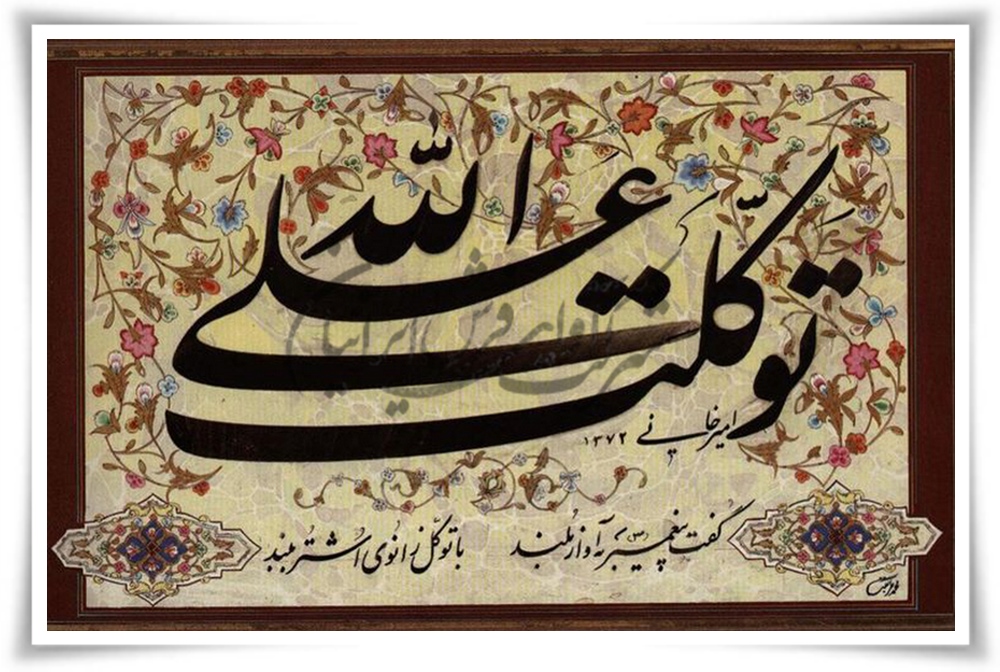 توکلت علی الله
امیرخانی ۱۳۷۲
گفت پیغمبر (ص) به آواز بلند با توکّل زانوی اُشتر ببند